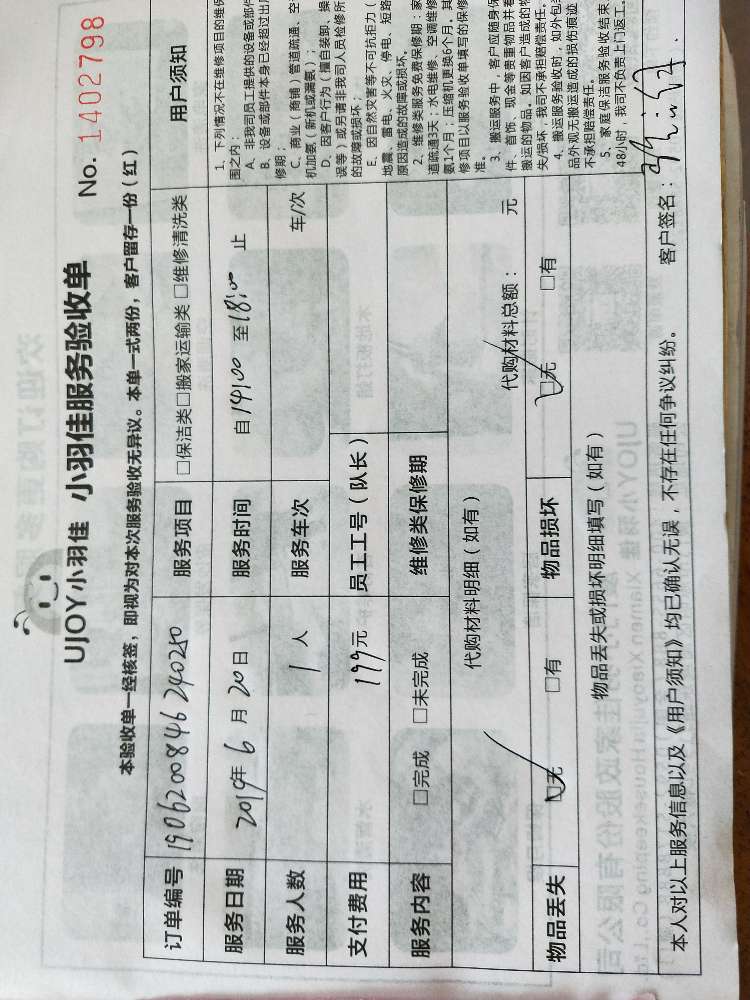 UJOY小羽佳 小羽佳服务验收单
No. 1402798
本验收单一经核签，即视为对本次服务验收无异议。本单一式两份，客户留存一份（红）
订单编号 1906200846240250 服务项目 □保洁类□搬家运输类 □维修清洗类
服务日期 2019年 6 月 20 日 服务时间 自 14:00 至 18:00 止
服务人数 1 人 服务车次 车/次
支付费用 199元 员工工号（队长）
服务内容 □完成 □未完成 维修类保修期
代购材料明细（如有） 代购材料总额： 元
物品丢失 □无 □有 物品损坏 □无 □有
物品丢失或损坏明细填写（如有）
用户须知
1、下列情况不在维修项目的维保
围之内：
A、非我司员工提供的设备或部件
B、设备或部件本身已经超过出厂
修期
C、商业（商铺）管道疏通、空
机加氨（新机或漏氨）；
D、因客户行为（擅自装卸、操
误等）或另请非我司人员检修所
的故障或损坏；
E、因自然灾害等不可抗拒力（
地震、雷电、火灾、停电、短路
原因造成的故障或损坏。
2、维修类服务免费保修期：家
道疏通3天；水电维修、空调维修
氨1个月；压缩机更换6个月。其
修项目以服务验收单填写的保修
准。
3、搬运服务中，客户应随身保
件、首饰、现金等贵重物品并看
搬运的物品。如因客户造成的物
失/损坏，我司不承担赔偿责任。
4、搬运服务验收时，如外包装
品外观无搬运造成的损伤痕迹
不承担赔偿责任。
5、家庭保洁服务验收结束
48小时，我司不负责上门返工。
本人对以上服务信息以及《用户须知》均已确认无误，不存在任何争议纠纷。 客户签名：